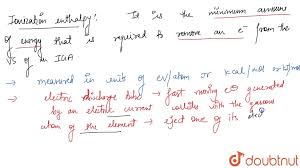 Ionisation enthalpy: It is the minimum amount
of energy that is required to remove an e⁻ from the
VS of in IGA
→ measured in units of eV/atom or kcal/mol or kJ/mol
→ electric discharge tube → fast moving e⁻ generated
by an electric current collides with the gaseous
atom of the element → eject one of its elec
doubtnut